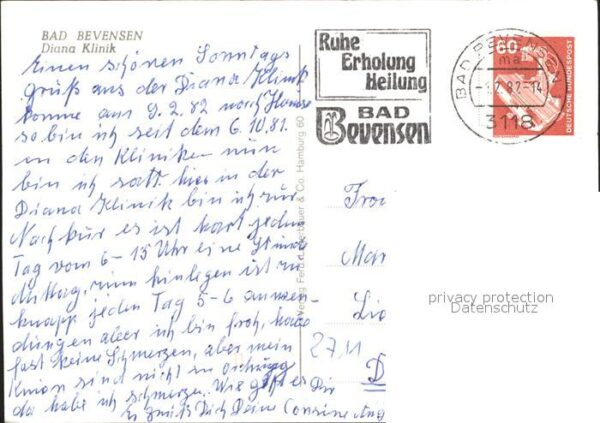 BAD BEVENSEN
Diana Klinik
Einen schönen Sonntags
grüß aus der Diana Klinik
komme am 9.2.82 nach Hause
so bin ich seit dem 6.10.81.
in den Kliniken nun
bin ich satt hier in der
Diana Klinik bin ich zur
Nachkur es ist hart jeden
Tag vom 6-15 Uhr eine Stunde
Mittag, zum hinlegen ist zu
knapp jeden Tag 5-6 anwen-
dungen aber ich bin froh, habe
fast keine Schmerzen, aber mein
sind nicht in
da habe ich schmerzen. Wie geht es Dir
Es grüßt Dich Deine Cousine
Ruhe
Erholung
Heilung
BAD
Bevensen
BAD BEVENSEN
ma
-1.2.82-14
3118
60
DEUTSCHE BUNDESPOST
Verlag Ferd. Lagerbauer & Co. Hamburg 60
Frau
Mar
Lie
27,11
D
privacy protection
Datenschutz